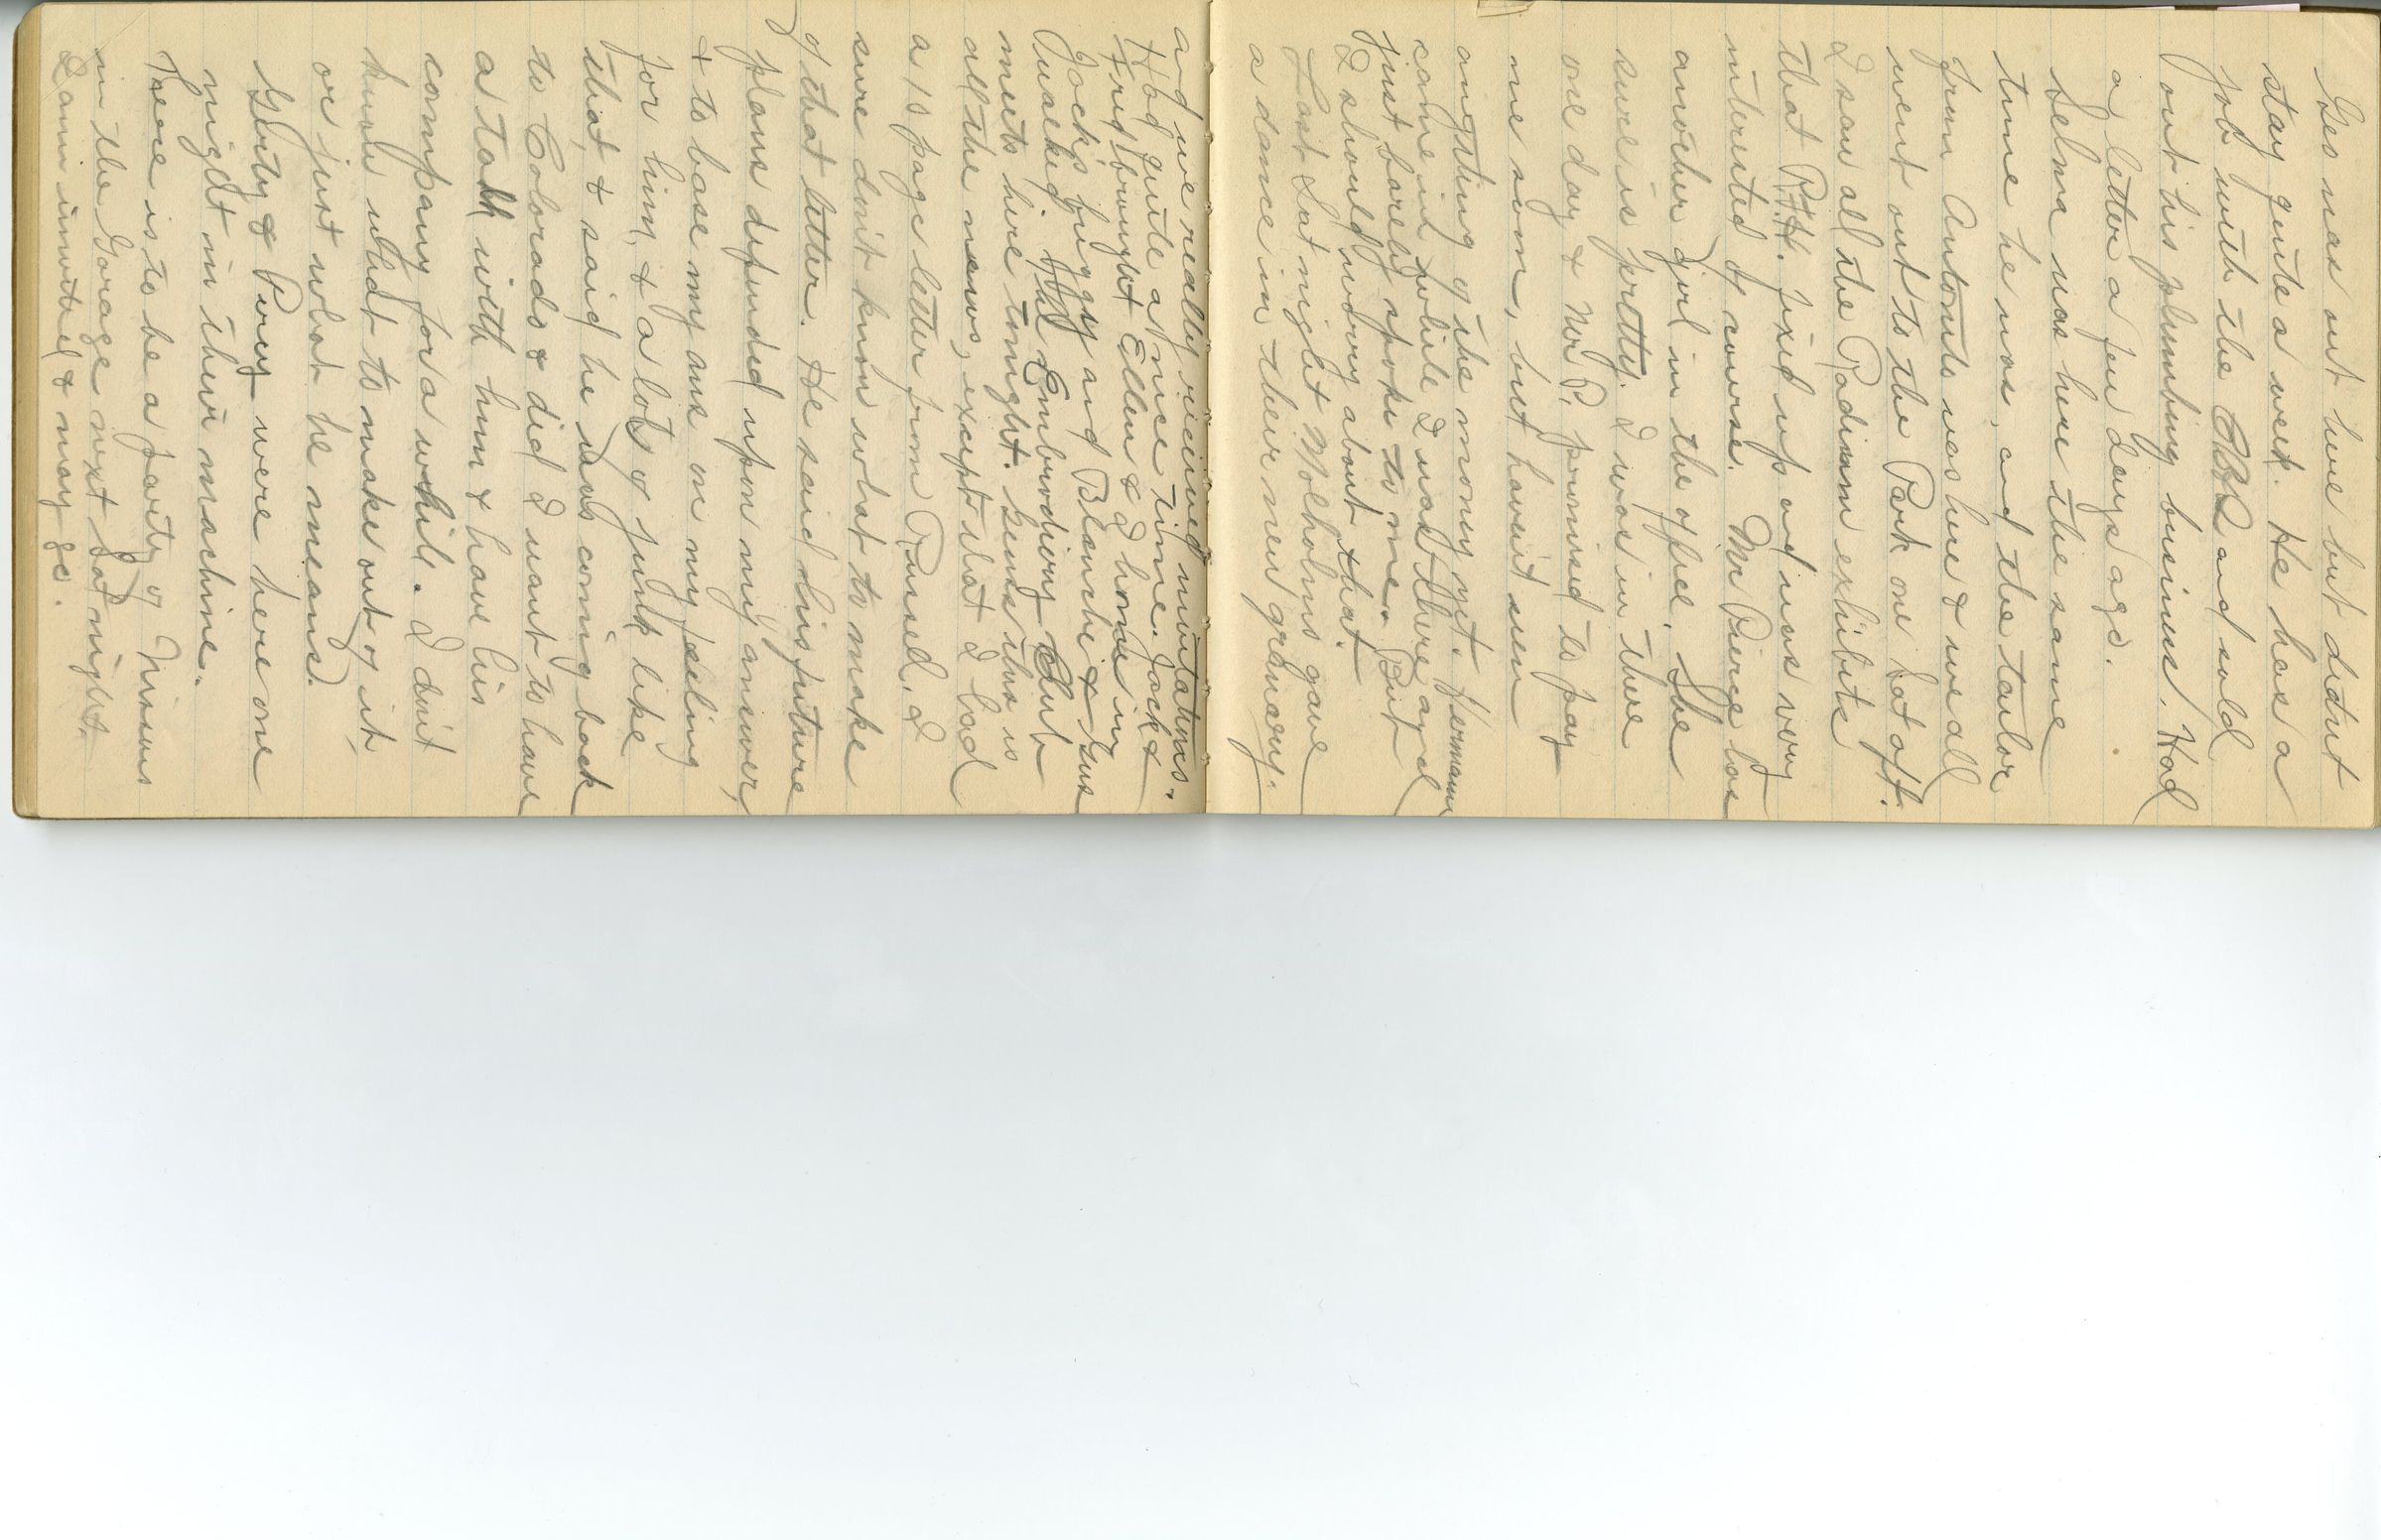 Geo was out here but didnt
stay quite a week. He has a
job with the and sold
out his plumbing business. Had
a letter a few days ago.
Selma was here the same
time he was, and the tailor
from Antonito was here & we all
went out to the Park one Sat aft.
I saw all the Radium exhibits
that R.H. fixed up and was very
interested of course. Mr Pierce has
another girl in the office. She
sure is pretty. I was in there
one day & Mr P. promised to pay
me soon, but havent seen
anything of the money yet. Hermann
came in while I was there and
just barely spoke to me. But
I should worry about that.
Last Sat night Molholms gave
a dance in their new granary.
and we really received invitations.
Had quite a nice time. Jack &
Fred brought Ellen & I home in
Jack's buggy and Blanche & Gus
walked. The Embrodiery Club
meets here tonight. Guess this is
all the news, except that I had
a 15 page letter from Russel. I
sure dont know what to make
of that letter. He said his future
plans depended upon my answer,
& to base my ans on my feeling
for him, & a lot of junk like
that, & said he was coming back
to Colorado & did I want to have
a talk with him & have his
company for a while. I don't
know what to make out of it,
or just what he means.
Gerty & Percy were here one
night in their machine.
There is to be a party of
in the Garage next Sat night.
I am invited & may go.